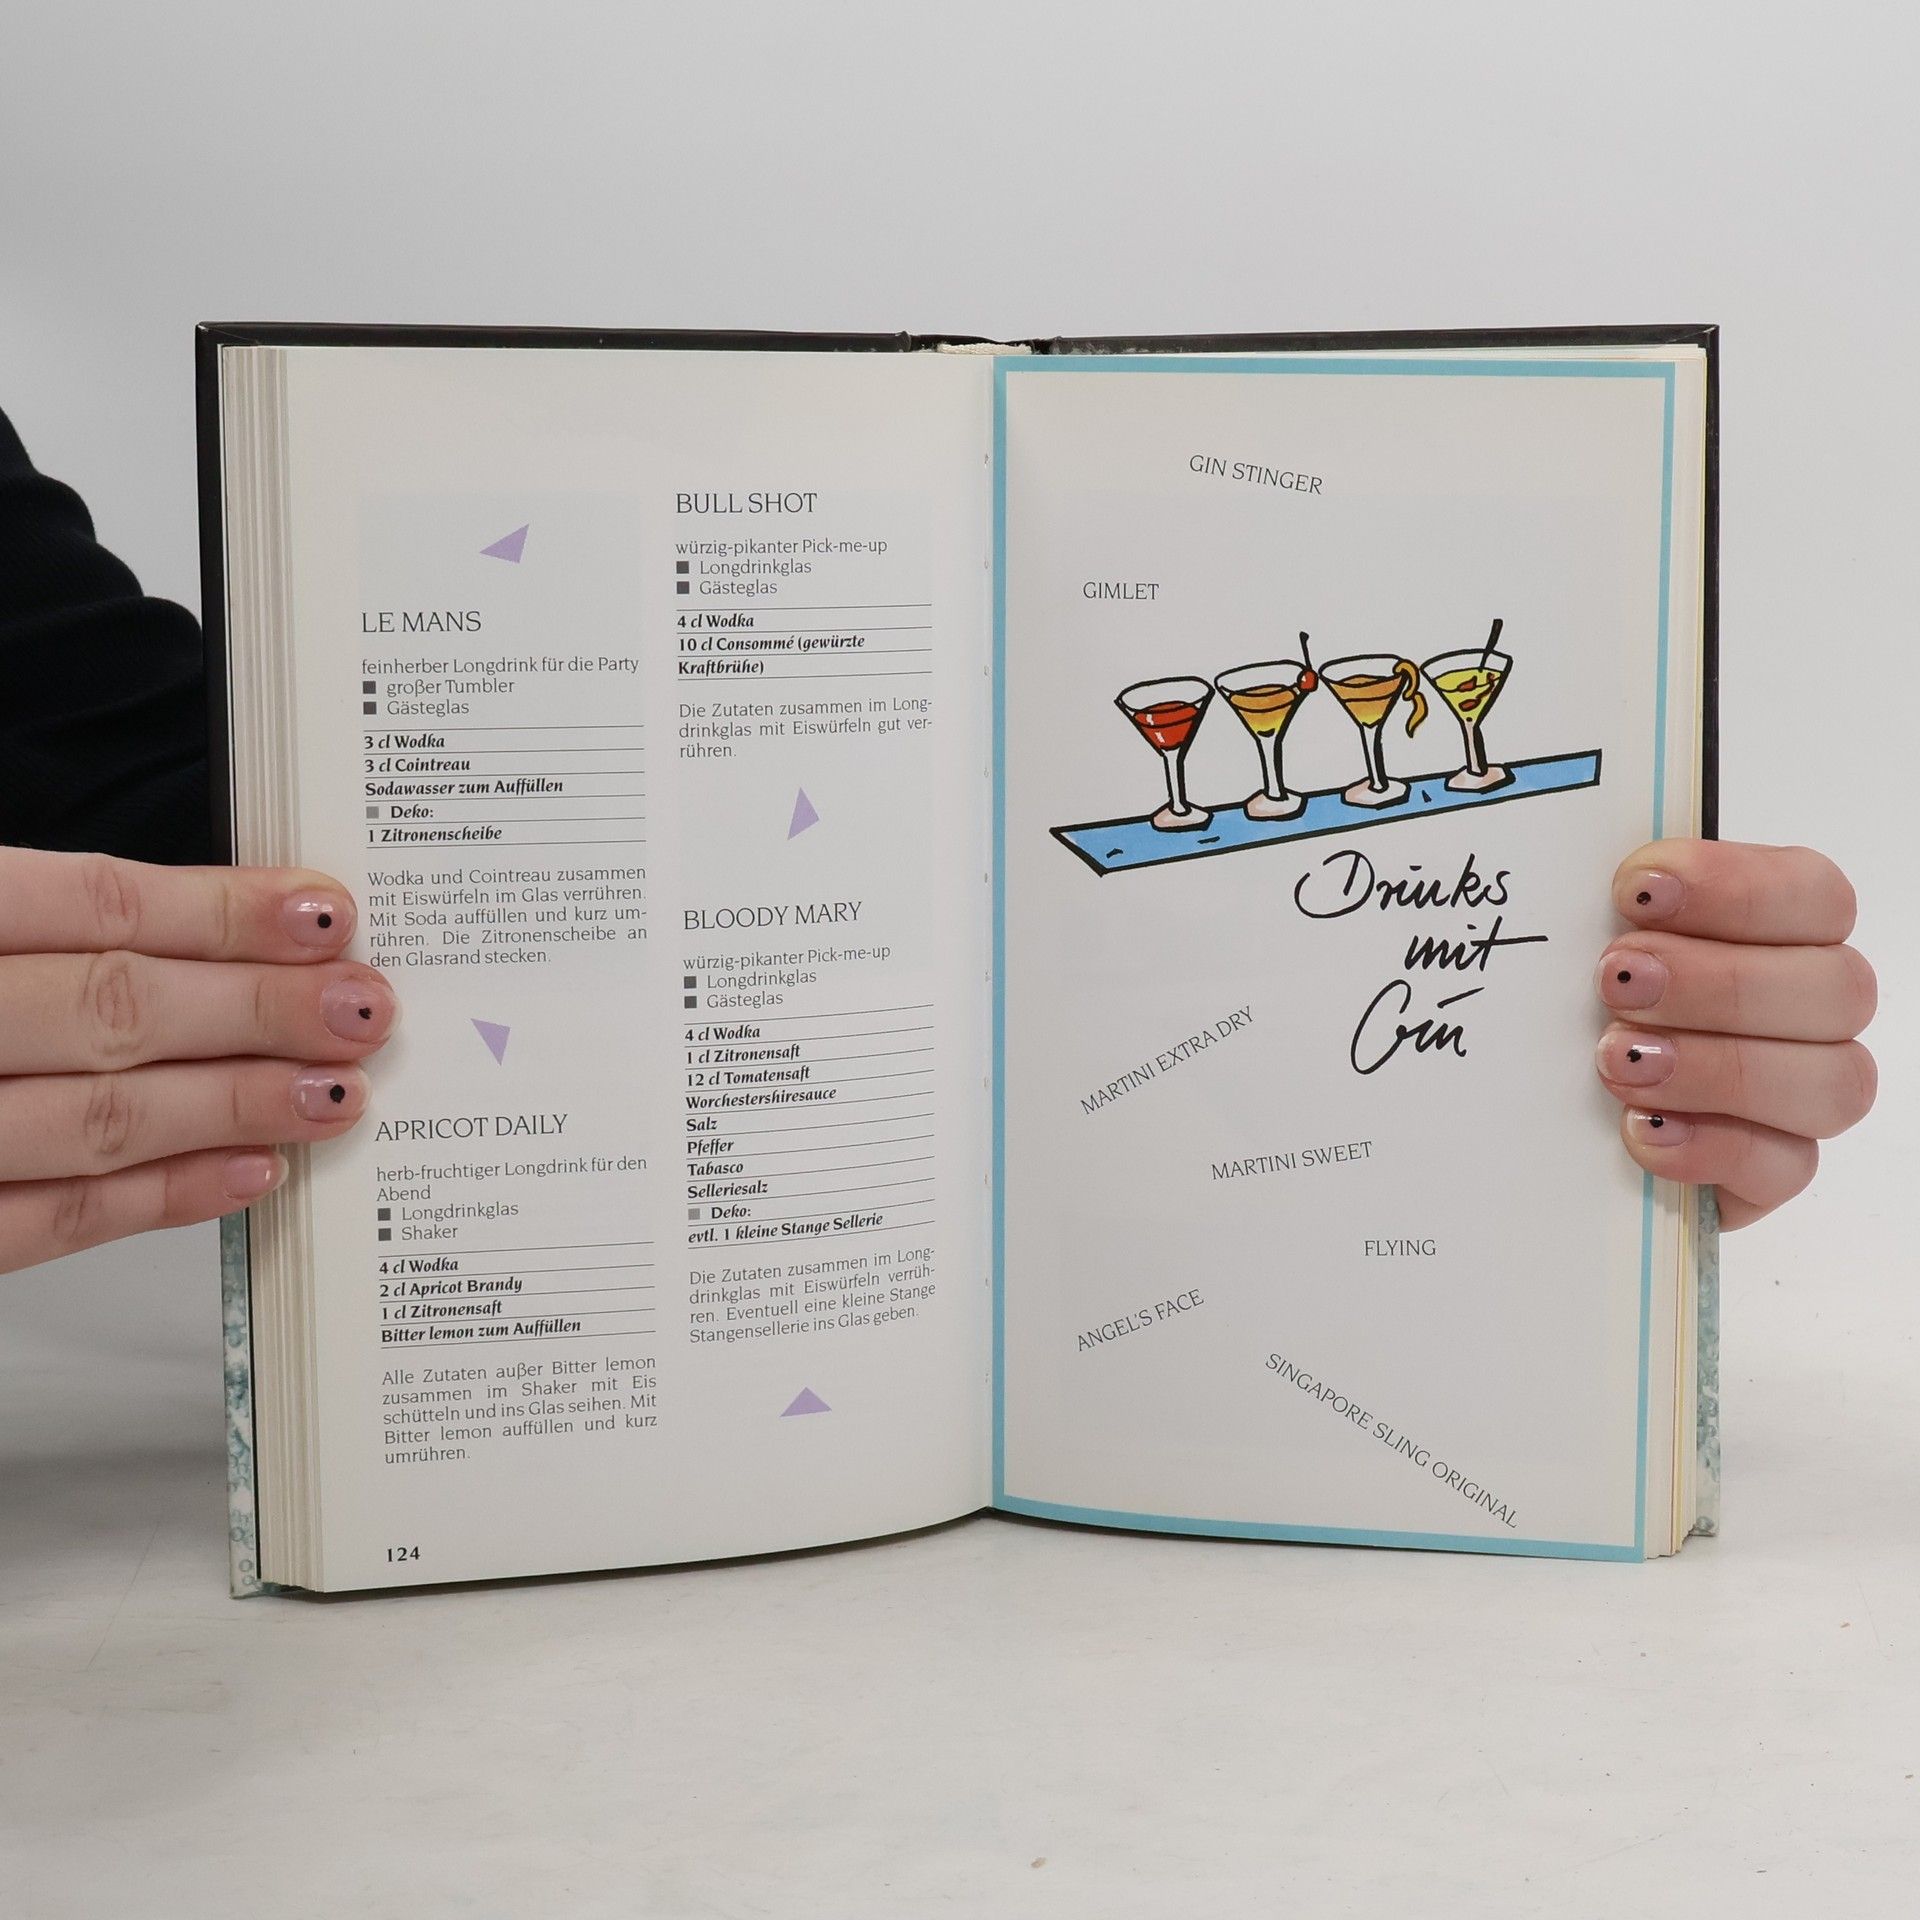 LE MANS
feinherber Longdrink für die Party
■ großer Tumbler
■ Gästeglas
3 cl Wodka
3 cl Cointreau
Sodawasser zum Auffüllen
■ Deko:
1 Zitronenscheibe
Wodka und Cointreau zusammen
mit Eiswürfeln im Glas verrühren.
Mit Soda auffüllen und kurz um-
rühren. Die Zitronenscheibe an
den Glasrand stecken.
APRICOT DAILY
herb-fruchtiger Longdrink für den
Abend
■ Longdrinkglas
■ Shaker
4 cl Wodka
2 cl Apricot Brandy
1 cl Zitronensaft
Bitter lemon zum Auffüllen
Alle Zutaten außer Bitter lemon
zusammen im Shaker mit Eis
schütteln und ins Glas seihen. Mit
Bitter lemon auffüllen und kurz
umrühren.
124
BULL SHOT
würzig-pikanter Pick-me-up
■ Longdrinkglas
■ Gästeglas
4 cl Wodka
10 cl Consommé (gewürzte
Kraftbrühe)
Die Zutaten zusammen im Long-
drinkglas mit Eiswürfeln gut ver-
rühren.
BLOODY MARY
würzig-pikanter Pick-me-up
■ Longdrinkglas
■ Gästeglas
4 cl Wodka
1 cl Zitronensaft
12 cl Tomatensaft
Worchestershiresauce
Salz
Pfeffer
Tabasco
Selleriesalz
■ Deko:
evtl. 1 kleine Stange Sellerie
Die Zutaten zusammen im Long-
drinkglas mit Eiswürfeln verrüh-
ren. Eventuell eine kleine Stange
Stangensellerie ins Glas geben.
GIN STINGER
GIMLET
Drinks
mit
Gin
MARTINI EXTRA DRY
MARTINI SWEET
FLYING
ANGEL'S FACE
SINGAPORE SLING ORIGINAL